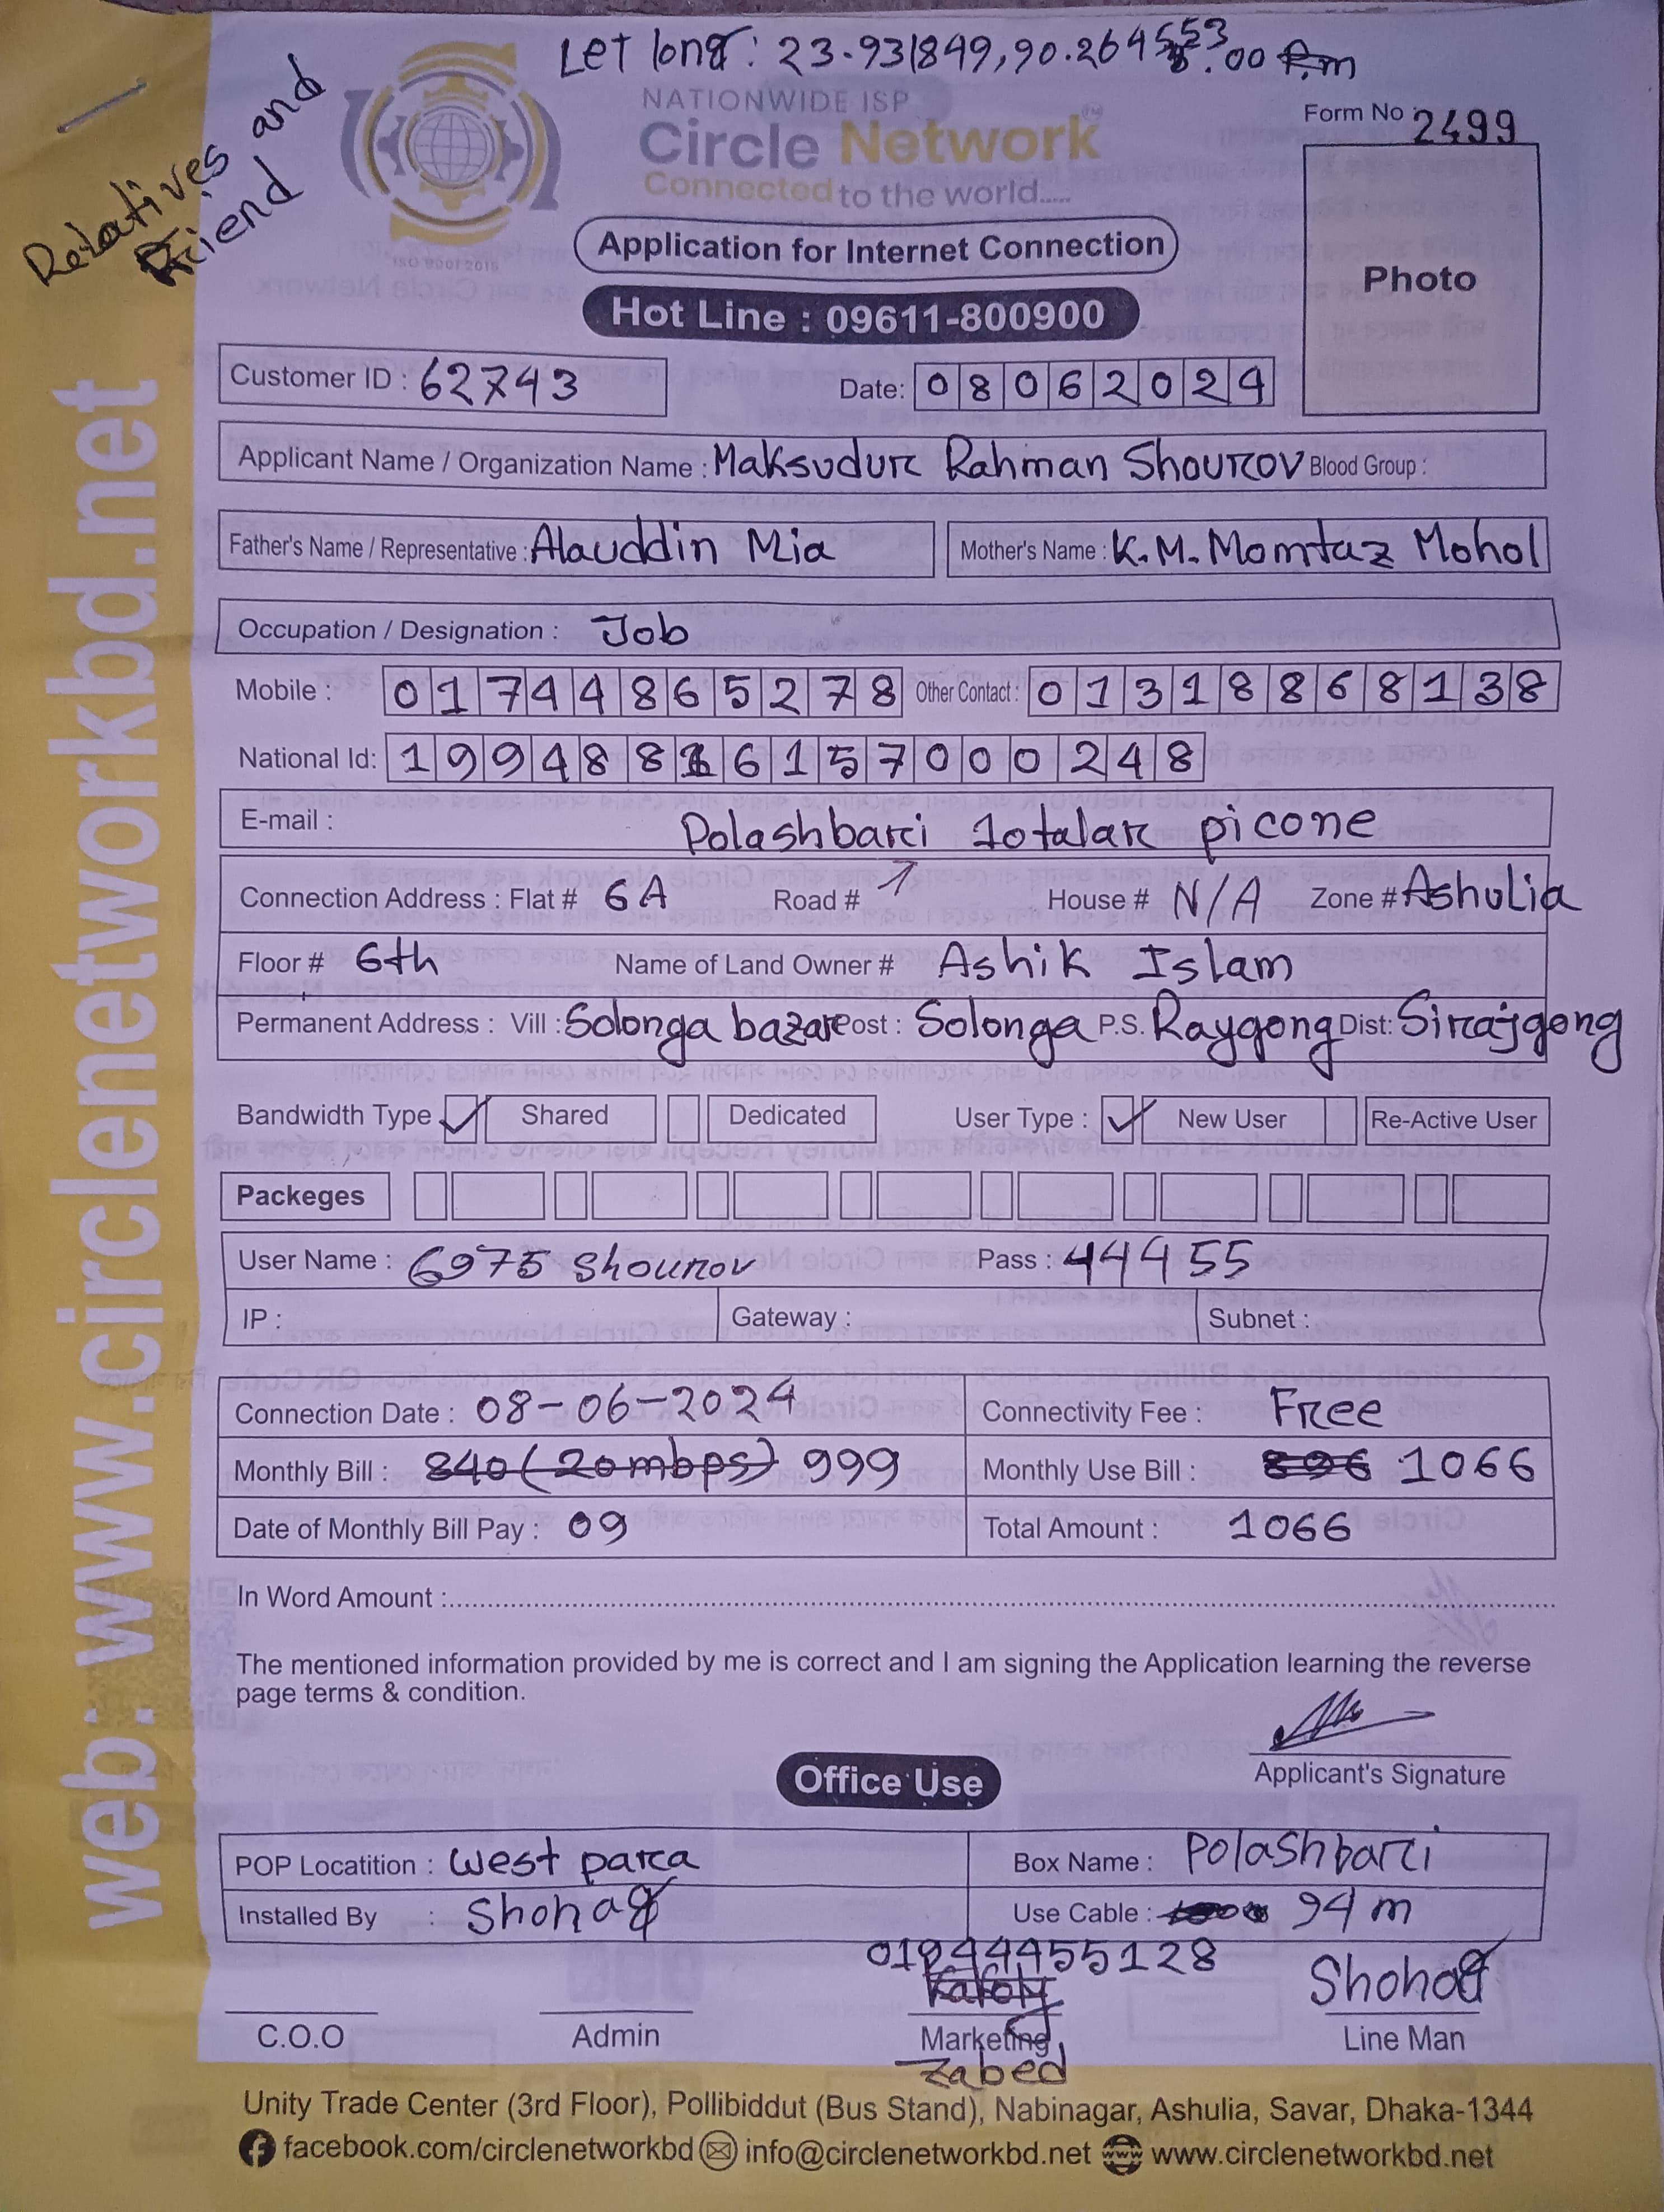 Let long: 23.931849,90.264553
.00 P.m
Relatives and
Friend
NATIONWIDE ISP
Circle Network™
Connected to the world.....
ISO 9001 2015
Form No 2499
Application for Internet Connection
Photo
Hot Line : 09611-800900
Customer ID : 62743 Date: 08062024
Applicant Name / Organization Name : Maksudur Rahman Shourov Blood Group :
Father's Name / Representative : Alauddin Mia Mother's Name : K.M. Momtaz Mohol
Occupation / Designation : Job
Mobile : 01744865278 Other Contact : 01318868138
National Id: 19948816157000248
E-mail :
Polashbari 10talar picone
Connection Address : Flat # 6A Road # House # N/A Zone # Ashulia
Floor # 6th Name of Land Owner # Ashik Islam
Permanent Address : Vill : Solonga bazar Post : Solonga P.S. Raygong Dist: Sirajgong
Bandwidth Type Shared Dedicated User Type : New User Re-Active User
Packeges
User Name : 6975 Shourov Pass : 44455
IP : Gateway : Subnet :
Connection Date : 08-06-2024 Connectivity Fee : Free
Monthly Bill : 840 (20mbps) 999 Monthly Use Bill : 896 1066
Date of Monthly Bill Pay : 09 Total Amount : 1066
In Word Amount :
The mentioned information provided by me is correct and I am signing the Application learning the reverse
page terms & condition.
Applicant's Signature
Office Use
POP Locatition : West para Box Name : Polashbari
Installed By : Shohag Use Cable : 94 m
Shohag
C.O.O Admin Marketing Line Man
Zabed
Unity Trade Center (3rd Floor), Pollibiddut (Bus Stand), Nabinagar, Ashulia, Savar, Dhaka-1344
facebook.com/circlenetworkbd info@circlenetworkbd.net www.circlenetworkbd.net
web: www.circlenetworkbd.net